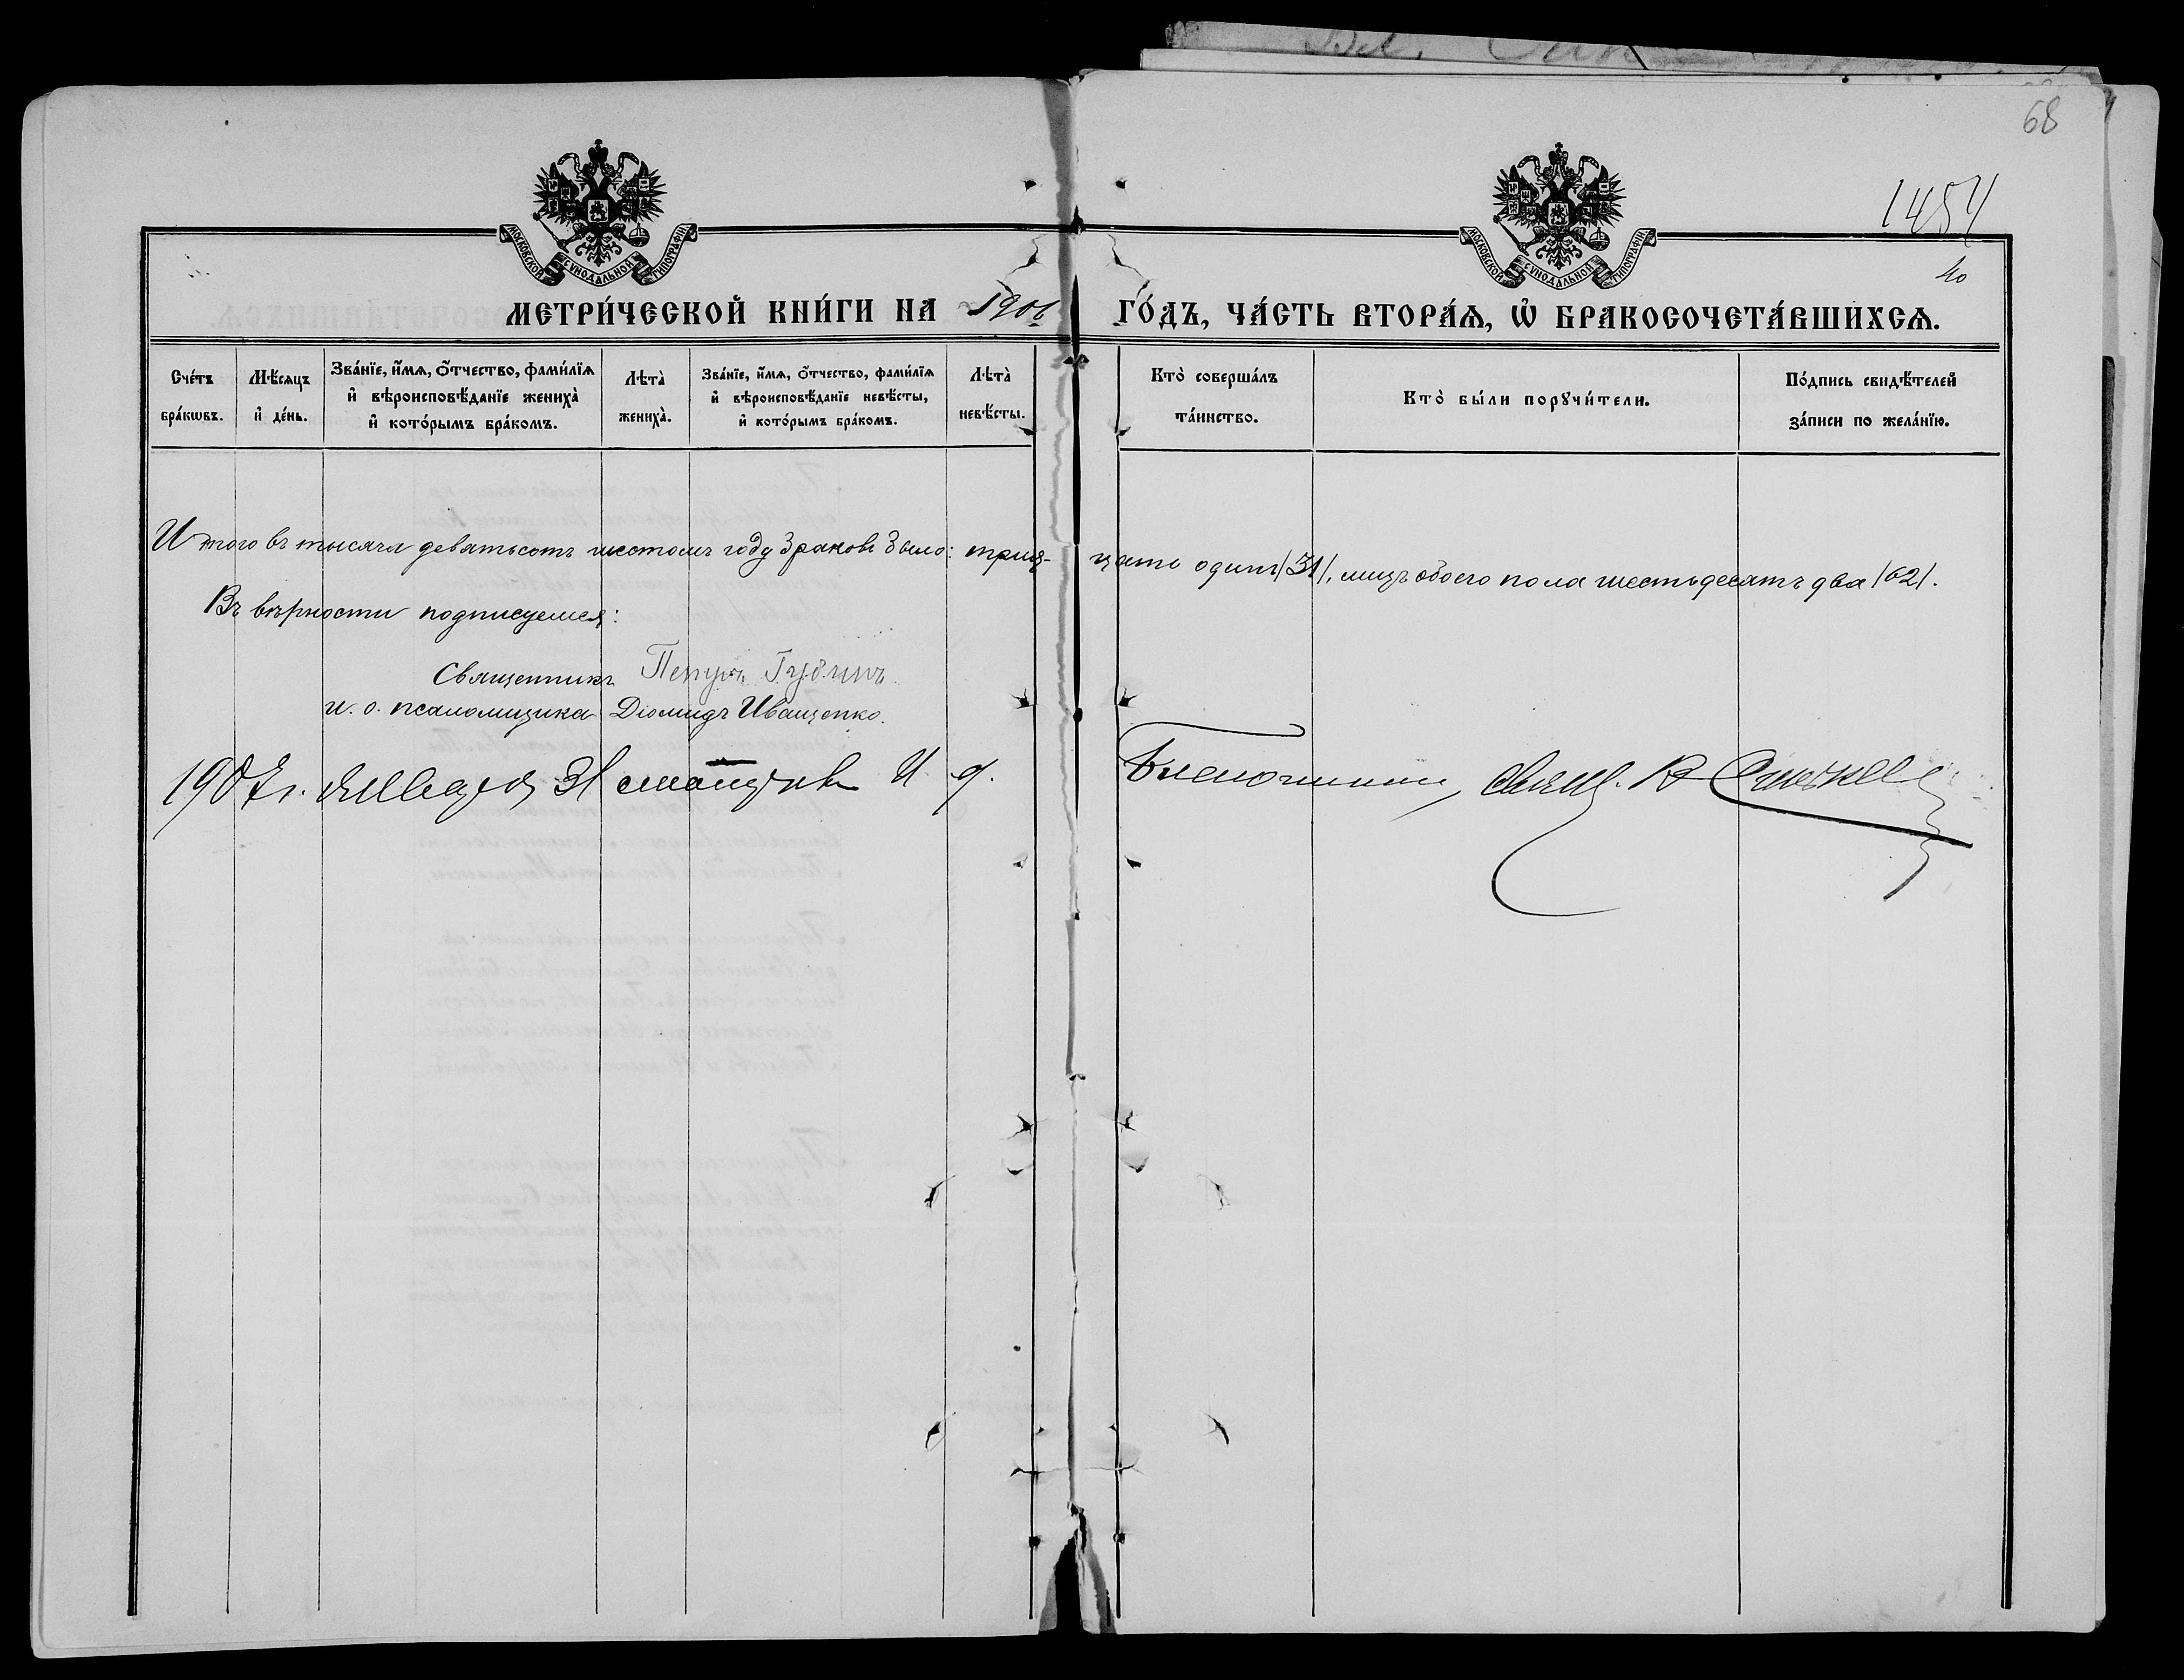 68
1454
40
МОСКОВСКОЙ СУНОДАЛЬНОЙ ТИПОГРАФІИ
МОСКОВСКОЙ СУНОДАЛЬНОЙ ТИПОГРАФІИ
МЕТРИ́ЧЕСКОЙ КНИ́ГИ НА 1906 ГО́ДЪ, ЧА́СТЬ ВТОРА́Ѧ, Ѡ҆ БРАКОСОЧЕТА́ВШИХСѦ.
Сче́тъ бра́кѡвъ.
Мѣ́сѧцъ и҆ де́нь.
Зва́нїе, и҆́мѧ, ѻ҆́тчество, фами́лїѧ и҆ вѣроисповѣ́данїе жениха̀ и҆ кото́рымъ бра́комъ.
Лѣта̀ жениха̀.
Зва́нїе, и҆́мѧ, ѻ҆́тчество, фами́лїѧ и҆ вѣроисповѣ́данїе невѣ́сты, и҆ кото́рымъ бра́комъ.
Лѣта̀ невѣ́сты.
Кто̀ соверша́лъ та́инство.
Кто̀ бы́ли порꙋчи́тели.
По́дпись свидѣ́телей за́писи по жела́нїю.
Итого въ тысяча девятьсотъ шестомъ году браковъ было: тридцать одинъ /31/, лицъ обоего пола шестьдесятъ два /62/.
Въ вѣрности подписуемся:
Священникъ Петръ Губинъ
и. о. псаломщика Діомидъ Иващенко.
1907 г. Января 31 И. д.
Благочинный, свящ. В.